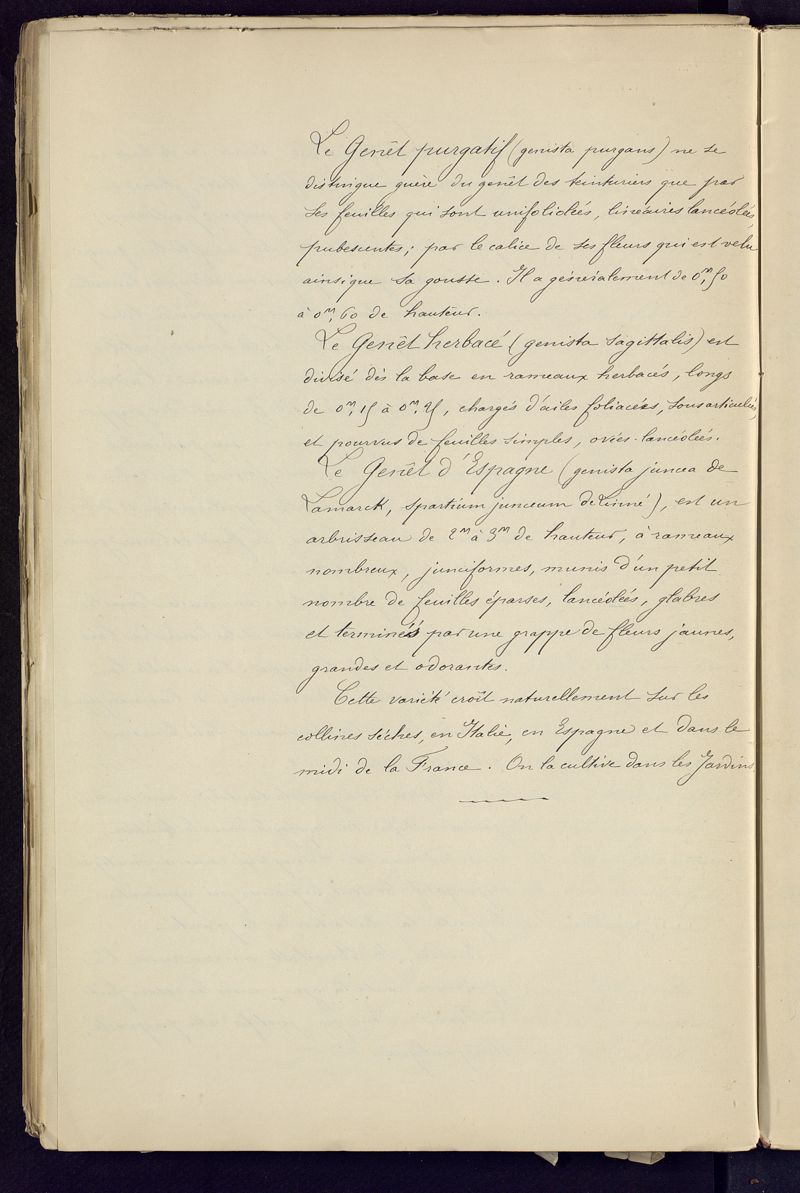 Le Genêt purgatif (genista purgans) ne se
distingue guère du genêt des teinturiers que par
ses feuilles qui sont unifoliolées, linéaires lancéolées,
pubescentes; par le calice de ses fleurs qui est velu
ainsi que sa gousse. Il a généralement de 0m,50
à 0m,60 de hauteur.
Le Genêt herbacé (genista sagittalis) est
divisé dès la base en rameaux herbacés, longs
de 0m,15 à 0m,25, chargés d'ailes foliacées, sous articulées,
et pourvus de feuilles simples, ovées-lancéolées.
Le Genêt d'Espagne (genista juncea de
Lamarck, spartium junceum de Linné), est un
arbrisseau de 2m à 3m de hauteur, à rameaux
nombreux, junciformes, munis d'un petit
nombre de feuilles éparses, lancéolées, glabres
et terminés par une grappe de fleurs jaunes,
grandes et odorantes.
Cette variété croît naturellement sur les
collines sèches, en Italie, en Espagne et dans le
midi de la France. On la cultive dans les Jardins.